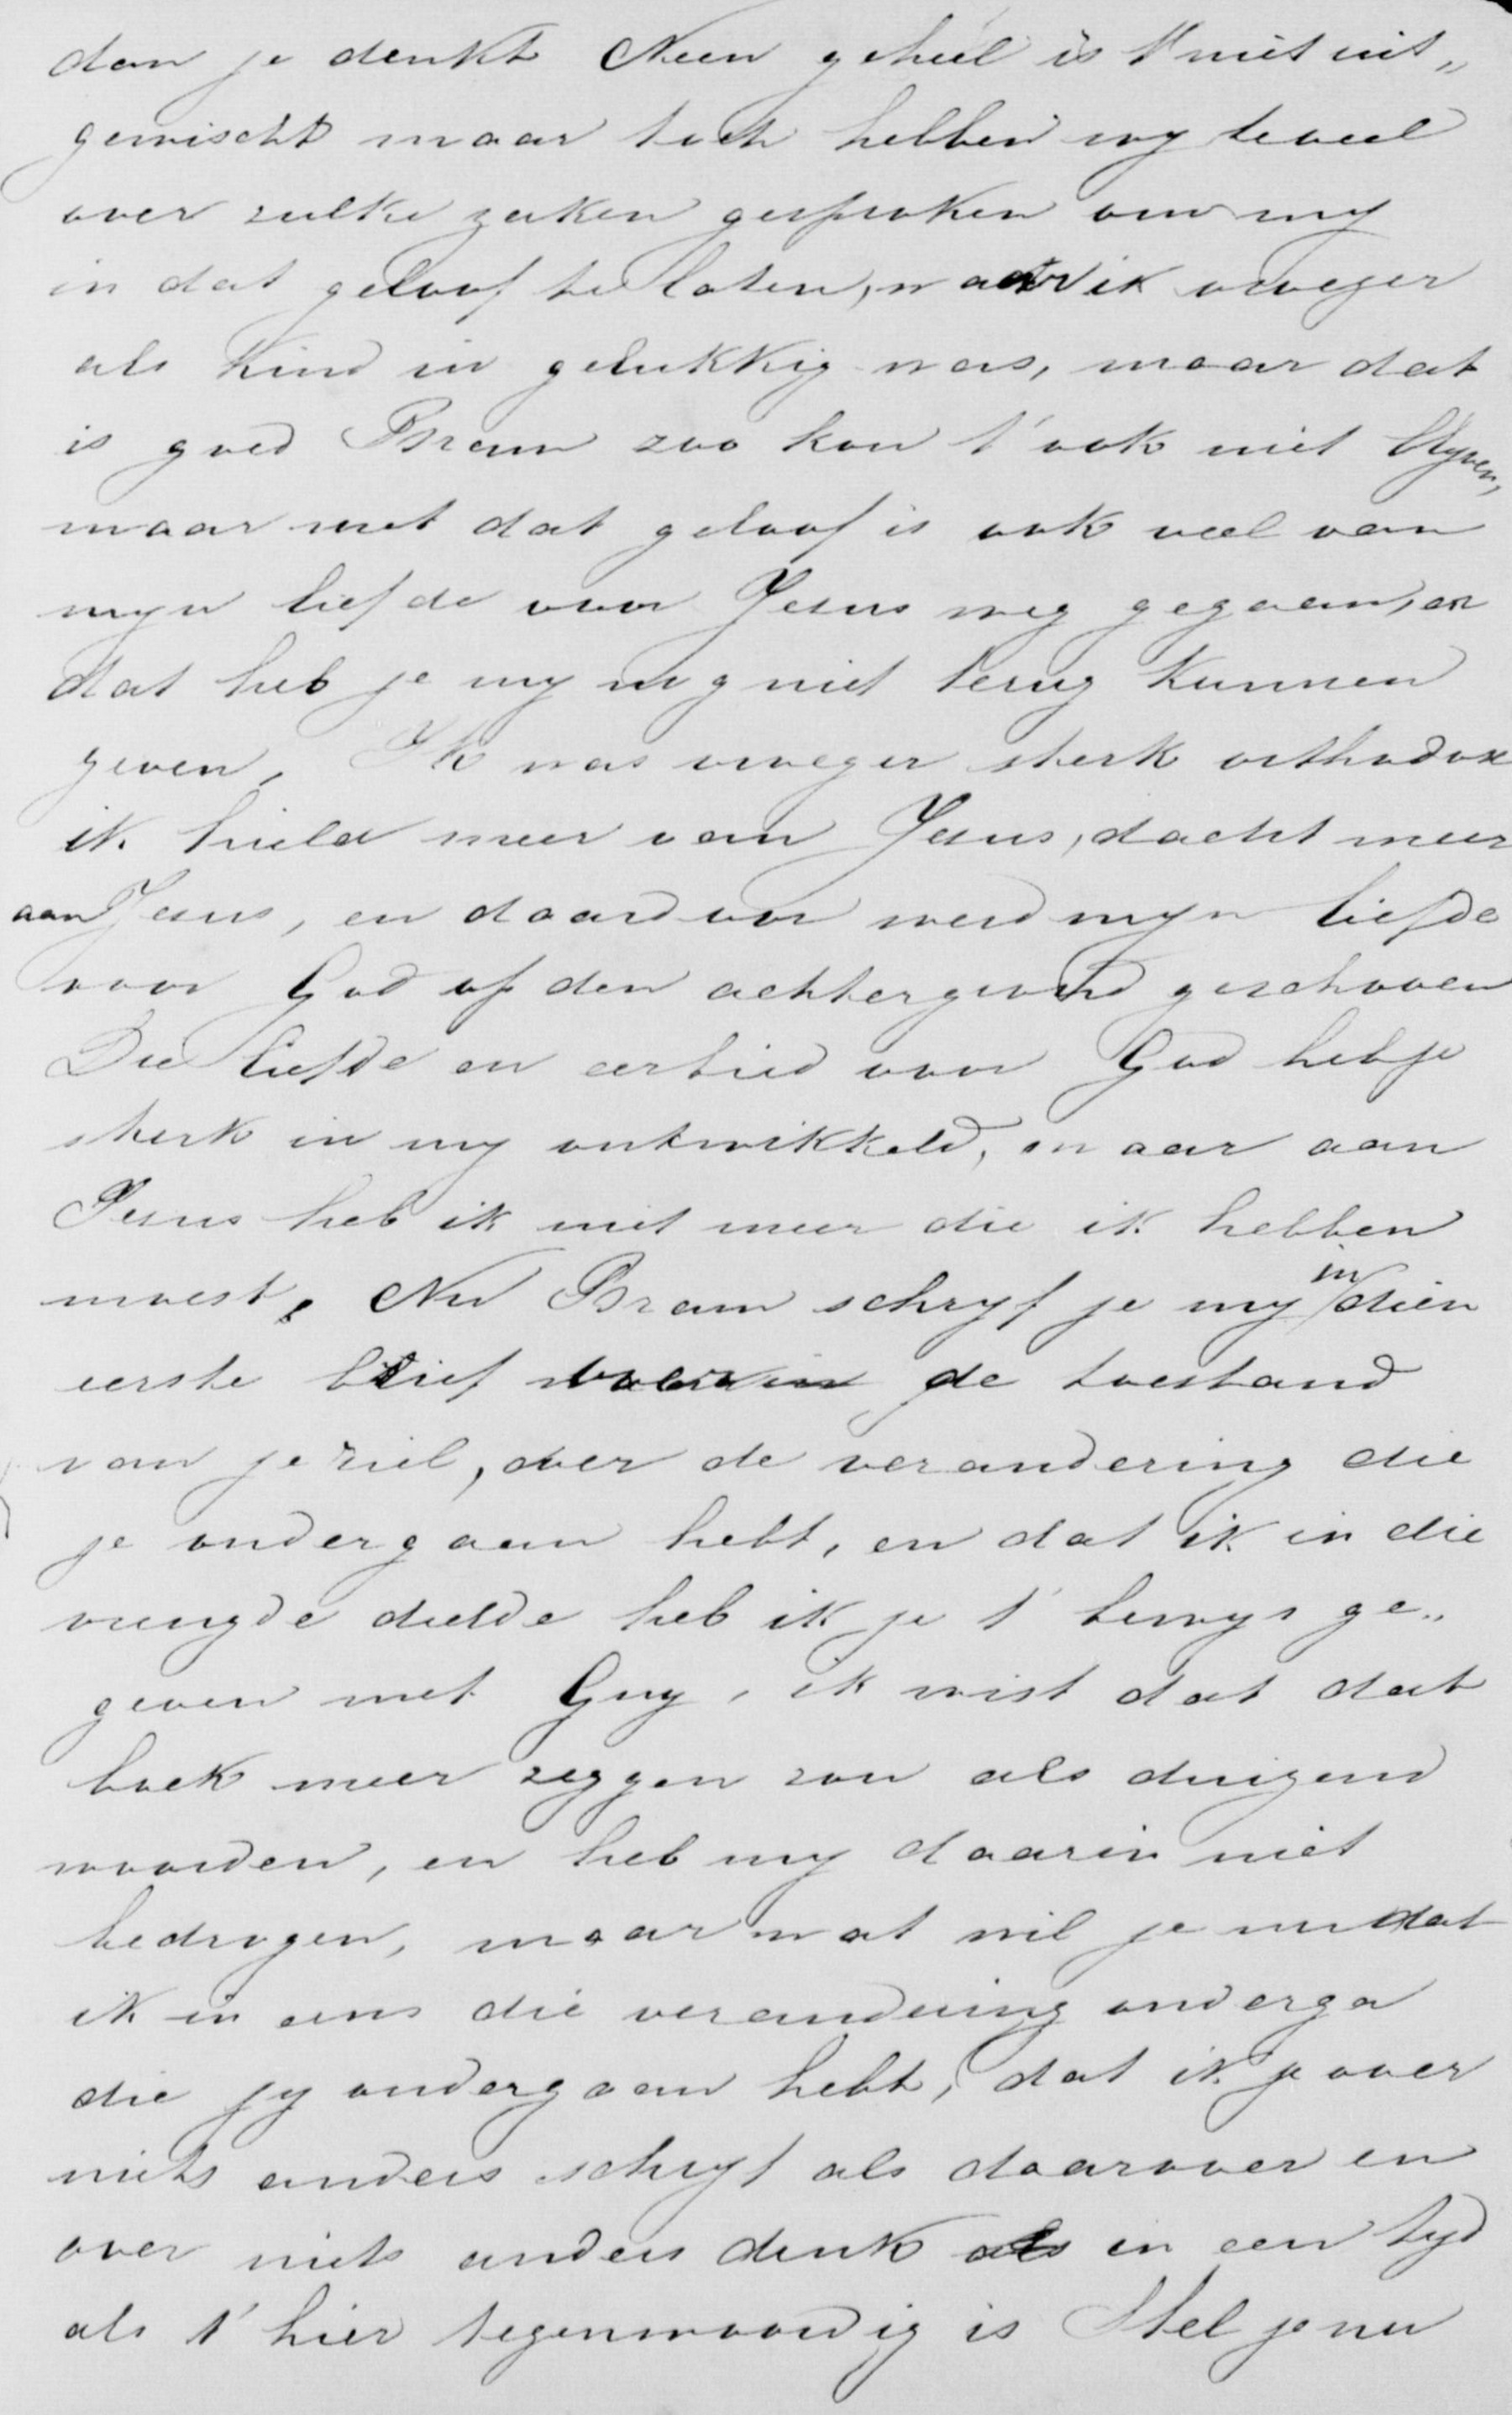 dan je denkt Neen geheel is t' niet uit„
gewischt maar toch hebben wy te veel
over zulke zaken gesproken om my
in dat geloof te laten, waar ik vroeger
als kind in gelukkig was, maar dat
is goed Bram zoo kon t' ook niet blyven,
maar met dat geloof is ook veel van
myn liefde voor Jesus weg gegaan, en
dat heb je my nog niet terug kunnen
geven, Ik was vroeger sterk orthodox
ik hield meer van Jesus, dacht meer
aan Jesus, en daardoor werd myn liefde
voor God op den achtergrond geschoven
Die liefde en eerbied voor God heb je
sterk in my ontwikkeld, maar aan
Jesus heb ik niet meer die ik hebben
moest, Nu Bram schryf je my in dien
eerste brief de toestand
van je ziel, over de verandering die
je ondergaan hebt, en dat ik in die
vreugde deelde heb ik je t' bewys ge„
geven met Guy, ik wist dat dat
boek meer zeggen zou als duizend
woorden, en heb my daarin niet
bedrogen, maar wat wil je nu dat
ik in eens die verandering onderga
die jy ondergaan hebt, dat ik je over
niets anders schryf als daarover en
over niets anders denk als in een tyd
als t' hier tegenwoordig is Stel je nu